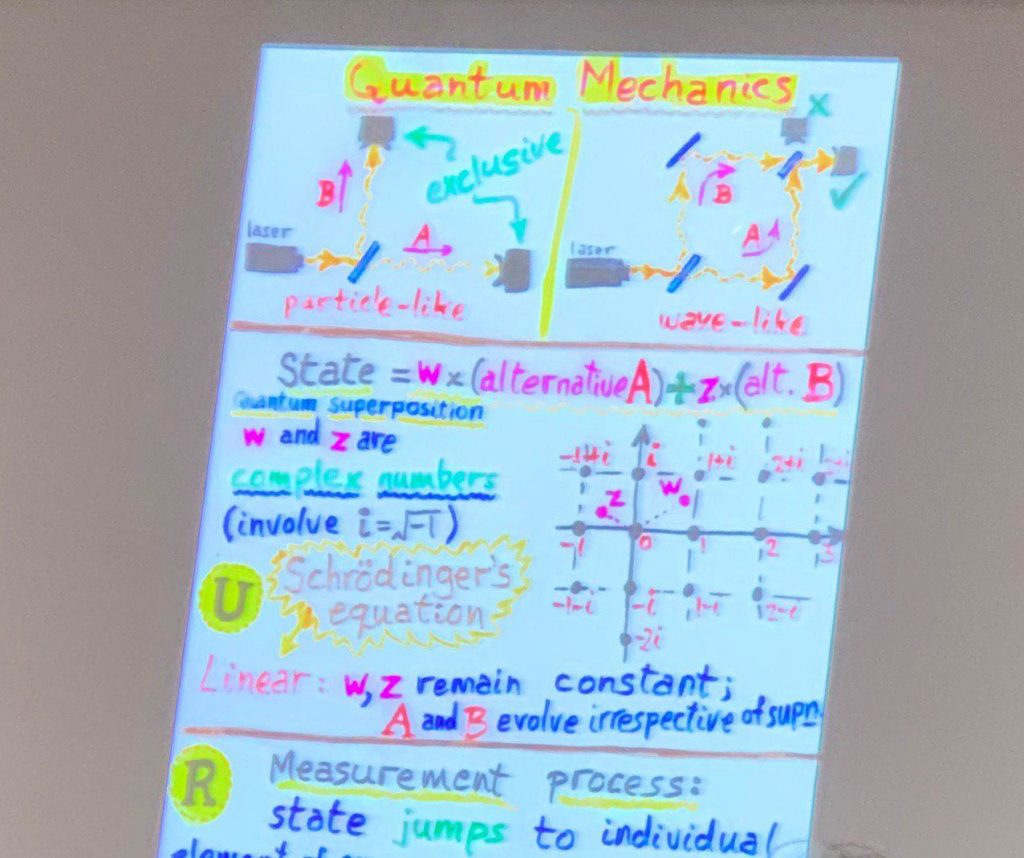 Quantum Mechanics
B
exclusive
laser
A
particle-like
x
B
A
laser
✓
wave-like
State = w × (alternative A) + z × (alt. B)
Quantum superposition
w and z are
complex numbers
(involve i=√-1)
-1+i i 1+i 2+i
z w
-1 0 1 2 3
-1-i -i 1-i 2-i
-2i
U Schrödinger's
equation
Linear: w, z remain constant;
A and B evolve irrespective of
R Measurement process:
state jumps to individual